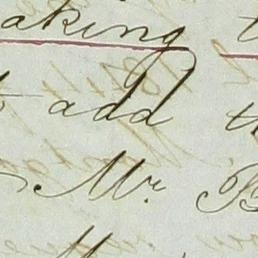 aking t
add th
Mr B